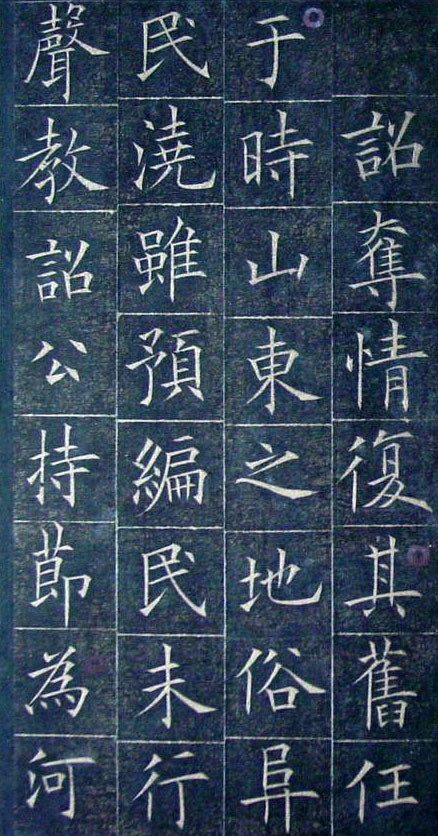 詔奪情復其舊任
于時山東之地俗阜
民澆雖預編民未行
聲教詔公持莭為河